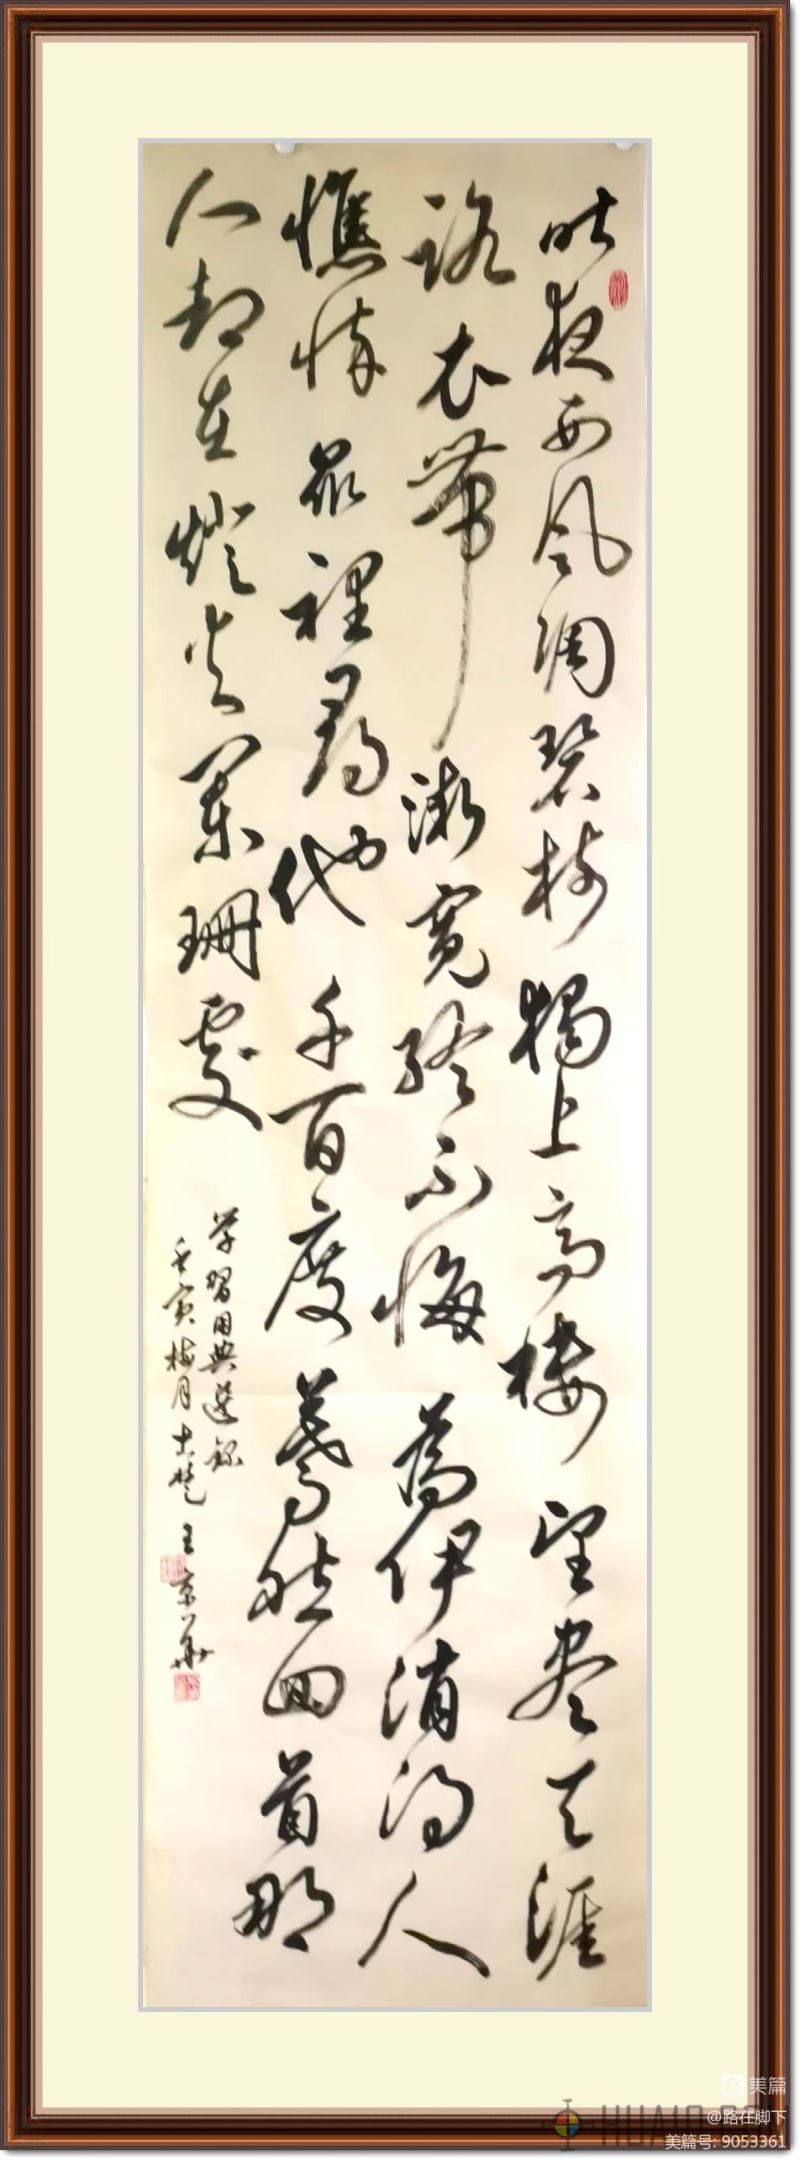 昨夜西风凋碧树獨上高楼望尽天涯
路衣带渐宽终不悔為伊消得人
憔悴众裡尋他千百度蓦然回首那
人却在燈火阑珊处
学習用典选録
壬寅梅月古楚王京華
美篇
@路在脚下
美篇号: 9053361